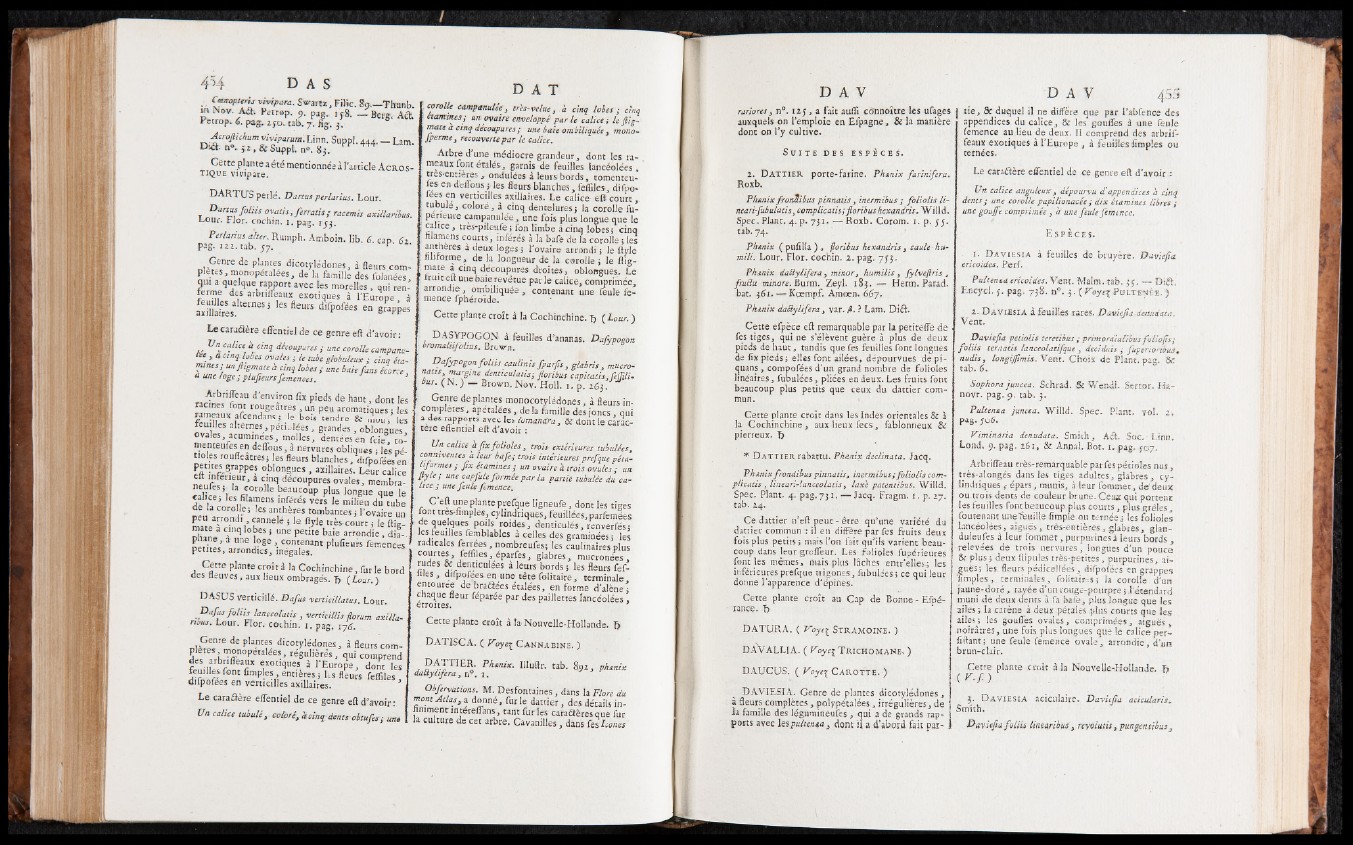 454 D A S
Cœnopteris vivipara. Swartz, Filic. 89.—Thunb.
in Nov. Act. Petrop. 9. pag. 158. — Berg. Act.
Petrop. 6. pag. 250. tab. 7. fig. 3.
Acrostichum viviparum. Linn. Suppl. 444. — Lam.
Dict. n°. 52, & Suppl. n°. 83.
Cette plante a été mentionnée à l'article ACROS-
TIQUE vivipare.
DARTUS perlé. Dartus perlarius. Lour.
Dartus foliis ovatis, serratis; racemis axillaribus.
Lour. Flor. cochin. 1. pag. 153.
Perlarius alter. Rumph. Amboin. lib. 6. cap. 62.
pag. 122. tab. 57.
Genre de plantes dicotylédones, à fleurs com-
plètes, monopétalées, de la famille des solanées,
qui a quelque rapport avec les morelles, qui ren-
ferme des arbrisseaux exotiques à l'Europe, à
feuilles alternes; les fleurs disposées en grappes
axillaires.
Le caractère essentiel de ce genre est d'avoir:
Un calice à cinq découpures; une corolle campanu-
lée, à cinq lobes ovales; le tube globuleux; cinq éta-
mines; un stigmate à cinq lobes; une baie sans écorce,
à une loge; plusieurs semences.
Arbrisseau d'environ six pieds de haut, dont les
racines sont rougeâtres, un peu aromatiques; les
rameaux ascendans; le bois tendre & mou; les
feuilles alternes, pétiolées, grandes, oblongues,
ovales, acuminées, molles, dentées en scie, to-
menteuses en dessous, à nervures obliques; les pé-
tioles roussâtres; les fleurs blanches, disposées en
petites grappes oblongues, axillaires. Leur calice
est inférieur, à cinq découpures ovales, membra-
neuses; la corolle beaucoup plus longue que le
calice; les filamens insérés vers le milieu du tube
de la corolle; les anthères tombantes; l'ovaire un
peu arrondi, cannelé; le style très-court; le stig-
mate à cinq lobes; une petite baie arrondie, dia-
phane, à une loge, contenant plusieurs semences
petites, arrondies, inégales.
Cette plante croît à la Cochinchine, sur le bord
des fleuves, aux lieux ombragés. ♄ (Lour.)
DASUS verticillé. Dasus verticillatus. Lour.
Dasus foliis lanceolatis, verticillis florum axilla-
ribus. Lour. Flor. cochin. 1. pag. 176.
Genre de plantes dicotylédones, à fleurs com-
plètes, monopétalées, régulières, qui comprend
des arbrisseaux exotiques à l'Europe, dont les
feuilles sont simples, entières; les fleurs sessiles,
disposées en verticilles axillaires.
Le caractère essentiel de ce genre est d'avoir:
Un calice tubulé, coloré, à cinq dents obtuses; une
D A T
corolle campanulée, très-velue, à cinq lobes; cinq
étamines; un ovaire enveloppé par le calice; le stig-
mate à cinq découpures; une baie ombiliquée, mono-
sperme, recouverte par le calice.
Arbre d'une médiocre grandeur, dont les ra-
meaux sont étalés, garnis de feuilles lancéolées,
très-entières, ondulées à leurs bords, tomenteu-
ses en dessous; les fleurs blanches, sessiles, dispo-
sées en verticilles axillaires. Le calice est court,
tubulé, coloré, à cinq dentelures; la corolle su-
périeure campanulée, une fois plus longue que le
calice, très-pileuse; son limbe à cinq lobes; cinq
filamens courts, insérés à la base de la corolle; les
anthères à deux loges; l'ovaire arrondi; le style
filiforme, de la longueur de la corolle; le stig-
mate à cinq découpures droites, oblongues. Le
fruit est une baie revêtue par le calice, comprimée,
arrondie, ombiliquée, contenant une seule se-
mence sphéroïde.
Cette plante croît à la Cochinchine. ♄ (Lour.)
DASYPOGON à feuilles d'ananas. Dasypogon
bromaliifolius. Brown.
Dasypogon foliis caulinis sparsis, glabris, mucro-
natis, margine denticulatis; floribus capitatis, sessili-
bus. (N.) — Brown. Nov. Holl. 1. p. 263.
Genre de plantes monocotylédones, à fleurs in-
complètes, apétalées, de la famille des joncs, qui
a des rapports avec les lomandra, & dont le carac-
tère essentiel est d'avoir:
Un calice à six folioles, trois extérieures tubulées,
conniventes à leur base; trois intérieures presque péta-
liformes; six étamines; un ovaire à trois ovules; un
style; une capsule formée par la partie tubulée du ca-
lice; une seule semence.
C'est une plante presque ligneuse, dont les tiges
sont très-simples, cylindriques, feuillées, parsemées
de quelques poils roides, denticulés, renversés;
les feuilles semblables à celles des graminées; les
radicales serrées, nombreuses; les caulinaires plus
courtes, sessiles, éparses, glabres, mucronées,
rudes & denticulées à leurs bords; les fleurs ses-
siles, disposées en une tête solitaire, terminale,
entourée de bractées étalées, en forme d'alène;
chaque fleur séparée par des paillettes lancéolées,
étroites.
Cette plante croît à la Nouvelle-Hollande. ♄
DATISCA. (Voyez CANNABINE.)
DATTIER. Phœnix. Illustr. tab. 892, phœnix
dactylifera, n°. 1.
Observations. M. Desfontaines, dans la Flore du
mont Atlas, a donné, sur le dattier, des détails in-
finiment intéressans, tant sur les caractères que sur
la culture de cet arbre. Cavanilles, dans ses Icones
D A V
rariores, n°. 125, a fait aussi connoître les usages
auxquels on l'emploie en Espagne, & la manière
dont on l'y cultive.
SUITE DES ESPÈCES.
2. DATTIER porte-farine. Phœnix farinifera.
Roxb.
Phœnix frondibus pinnatis, inermibus; foliolis li-
neari-subulatis, complicatis; floribus hexandris. Willd.
Spec. Plant. 4. p. 731. — Roxb. Corom. 1. p. 55.
tab. 74.
Phœnix (pusilla), floribus hexandris, caule hu-
mili. Lour. Flor. cochin. 2. pag. 753.
Phœnix dactylifera, minor, humilis, sylvestris,
fructu minore. Burm. Zeyl. 183. — Herm. Parad.
bat. 361. — Kœmpf. Amœn. 667.
Phœnix dactylifera, var. β. ? Lam. Dict.
Cette espèce est remarquable par la petitesse de
ses tiges, qui ne s'élèvent guère à plus de deux
pieds de haut, tandis que ses feuilles sont longues
de six pieds; elles sont ailées, dépourvues de pi-
quans, composées d'un grand nombre de folioles
linéaires, subulées, pliées en deux. Les fruits sont
beaucoup plus petits que ceux du dattier com-
mun.
Cette plante croît dans les Indes orientales & à
la Cochinchine, aux lieux secs, sablonneux &
pierreux. ♄
* DATTIER rabattu. Phœnix declinata. Jacq.
Phœnix frondibus pinnatis, inermibus; foliolis com-
plicatis, lineari-lanceolatis, laxè patentibus. Willd.
Spec. Plant. 4. pag. 731. — Jacq. Fragm. 1. p. 27.
tab. 24.
Ce dattier n'est peut-être qu'une variété du
dattier commun: il en diffère par ses fruits deux
fois plus petits; mais l'on sait qu'ils varient beau-
coup dans leur grosseur. Les folioles supérieures
sont les mêmes, mais plus lâches entr'elles; les
inférieures presque trigones, subulées; ce qui leur
donne l'apparence d'épines.
Cette plante croît au Cap de Bonne-Espé-
rance. ♄
DATURA. (Voyez STRAMOINE.)
DAVALLIA. (Voyez TRICHOMANE.)
DAUCUS. (Voyez CAROTTE.)
DAVIESIA. Genre de plantes dicotylédones,
à fleurs complètes, polypétalées, irrégulières, de
la famille des légumineuses, qui a de grands rap-
ports avec les pultenæa, dont il a d'abord fait par-
D A V 455
tie, & duquel il ne diffère que par l'absence des
appendices du calice, & les gousses à une seule
semence au lieu de deux. Il comprend des arbris-
seaux exotiques à l'Europe, à feuilles simples ou
ternées.
Le caractère essentiel de ce genre est d'avoir:
Un calice anguleux, dépourvu d'appendices à cinq
dents; une corolle papilionacée; dix étamines libres;
une gousse comprimée, à une seule semence.
ESPÈCES.
1. DAVIESIA à feuilles de bruyère. Daviesia
ericoides. Pers.
Pultenæa ericoides. Vent. Malm. tab. 35. — Dict.
Encycl. 5. pag. 738. n°. 3. (Voyez PULTENÉE.)
2. DAVIESIA à feuilles rares. Daviesia denudata.
Vent.
Daviesia petiolis teretibus; primordialibus foliosis;
foliis ternatis lanceolatisque, deciduis; superioribus
nudis, longissimis. Vent. Choix de Plant. pag. &
tab. 6.
Sophora juncea. Schrad. & Wendl. Sertor. Ha-
novr. pag. 9. tab. 3.
Pultenæa juncea. Willd. Spec. Plant. vol. 2.
pag. 506.
Viminaria denudata. Smith, Act. Soc. Linn.
Lond. 9. pag. 261, & Annal. Bot. 1. pag. 507.
Arbrisseau très-remarquable par ses pétioles nus,
très-alongés dans les tiges adultes, glabres, cy-
lindriques, épars, munis, à leur sommet, de deux
ou trois dents de couleur brune. Ceux qui portent
les feuilles sont beaucoup plus courts, plus grêles,
soutenant une feuille simple ou ternée; les folioles
lancéolées, aiguës, très-entières, glabres, glan-
duleuses à leur sommet, purpurines à leurs bords,
relevées de trois nervures, longues d'un pouce
& plus; deux stipules très-petites, purpurines, ai-
guës; les fleurs pédicellées, disposées en grappes
simples, terminales, solitaires; la corolle d'un
jaune-doré, rayée d'un rouge-pourpre; l'étendard
muni de deux dents à sa base, plus longue que les
ailes; la carène à deux pétales plus courts que les
ailes; les gousses ovales, comprimées, aiguës,
noirâtres, une fois plus longues que le calice per-
sistant; une seule semence ovale, arrondie, d'un
brun-clair.
Cette plante croît à la Nouvelle-Hollande. ♄
(V. f.)
3. DAVIESIA aciculaire. Daviesia acicularis.
Smith.
Daviesia foliis linearibus, revolutis, pungentibus,